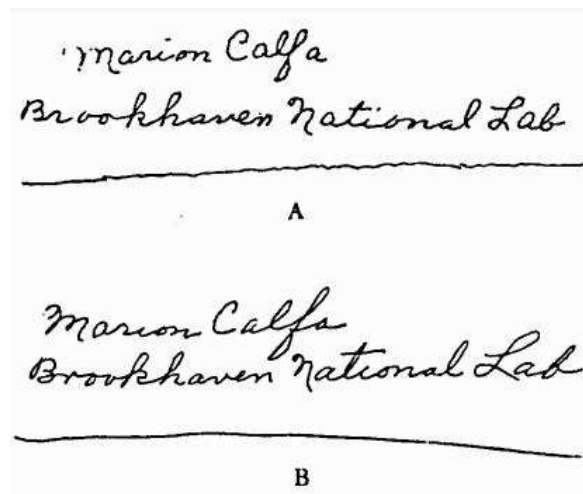 Marion Calfa
Brookhaven National Lab
A
Marion Calfa
Brookhaven National Lab
B